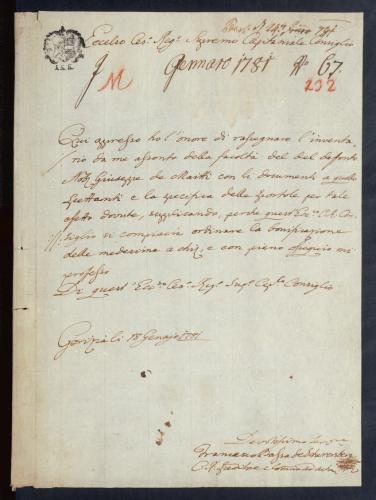 Eccelso Ces.º Reg.º Supremo Capitaniale Consiglio
M Gennaro 1781 Nº 67.
232
Qui appresso ho l'onore di rassegnare l'inventa
rio da me assonto della facoltà del del defonto
Nob. Giuseppe de con li documenti a quello
spettanti e la specifica delle Sportole per tale
efetto dovute, supplicando, perchè quest' Ecc.º C. R. Con
siglio si compiaccia ordinare la bonificazione
delle medesime a chi, e con pieno ossequio mi
professo
Di quest' Ecc.so Ces.º Reg.º Sup.º Cap.le Consiglio
Gorizia li 18 Genajo 1781
Devotissimo
Francesco